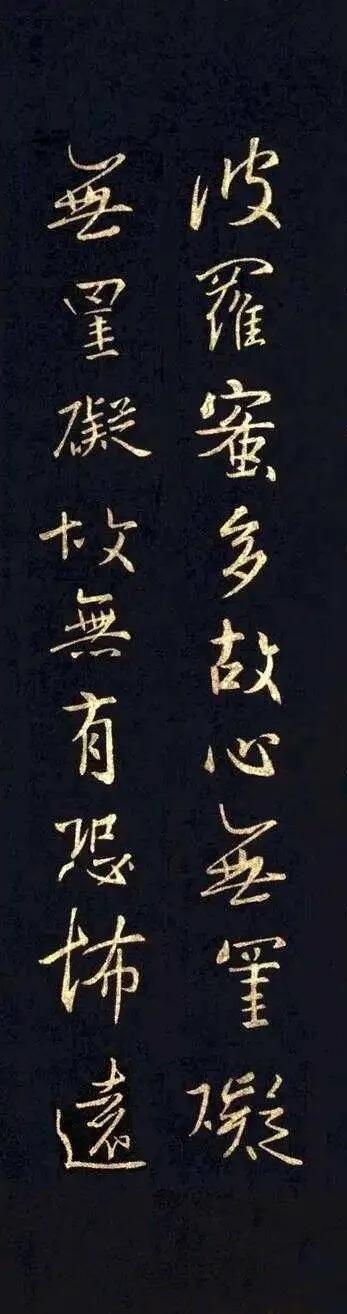 波羅蜜多故心無罣礙
無罣礙故無有恐怖遠